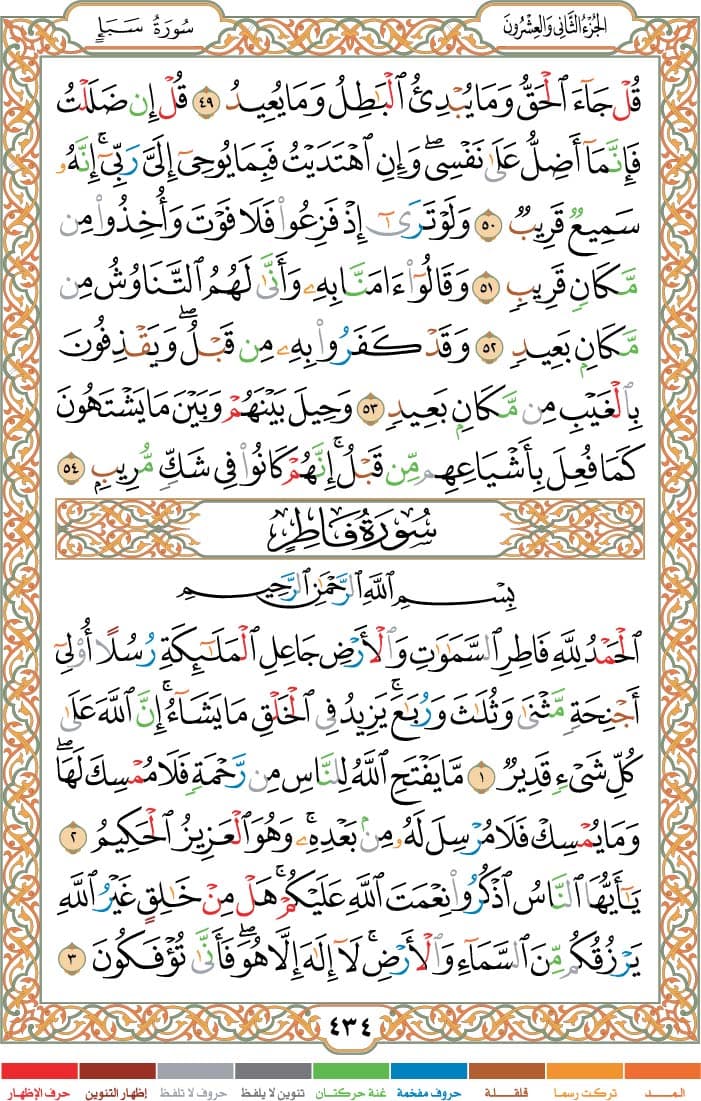 الجزء الثاني والعشرون
سورة سبإ
قُلْ جَآءَ ٱلْحَقُّ وَمَا يُبْدِئُ ٱلْبَٰطِلُ وَمَا يُعِيدُ ٤٩ قُلْ إِن ضَلَلْتُ
فَإِنَّمَآ أَضِلُّ عَلَىٰ نَفْسِى ۖ وَإِنِ ٱهْتَدَيْتُ فَبِمَا يُوحِىٓ إِلَىَّ رَبِّىٓ ۚ إِنَّهُۥ
سَمِيعٌ قَرِيبٌ ٥٠ وَلَوْ تَرَىٰٓ إِذْ فَزِعُوا۟ فَلَا فَوْتَ وَأُخِذُوا۟ مِن
مَّكَانٍ قَرِيبٍ ٥١ وَقَالُوٓا۟ ءَامَنَّا بِهِۦ وَأَنَّىٰ لَهُمُ ٱلتَّنَاوُشُ مِن
مَّكَانٍۭ بَعِيدٍ ٥٢ وَقَدْ كَفَرُوا۟ بِهِۦ مِن قَبْلُ ۖ وَيَقْذِفُونَ
بِٱلْغَيْبِ مِن مَّكَانٍۭ بَعِيدٍ ٥٣ وَحِيلَ بَيْنَهُمْ وَبَيْنَ مَا يَشْتَهُونَ
كَمَا فُعِلَ بِأَشْيَاعِهِم مِّن قَبْلُ ۚ إِنَّهُمْ كَانُوا۟ فِى شَكٍّ مُّرِيبٍۭ ٥٤
سورة فاطر
بِسْمِ ٱللَّهِ ٱلرَّحْمَٰنِ ٱلرَّحِيمِ
ٱلْحَمْدُ لِلَّهِ فَاطِرِ ٱلسَّمَٰوَٰتِ وَٱلْأَرْضِ جَاعِلِ ٱلْمَلَٰٓئِكَةِ رُسُلًا أُو۟لِىٓ
أَجْنِحَةٍ مَّثْنَىٰ وَثُلَٰثَ وَرُبَٰعَ ۚ يَزِيدُ فِى ٱلْخَلْقِ مَا يَشَآءُ ۚ إِنَّ ٱللَّهَ عَلَىٰ
كُلِّ شَىْءٍ قَدِيرٌ ١ مَّا يَفْتَحِ ٱللَّهُ لِلنَّاسِ مِن رَّحْمَةٍ فَلَا مُمْسِكَ لَهَا ۖ
وَمَا يُمْسِكْ فَلَا مُرْسِلَ لَهُۥ مِنۢ بَعْدِهِۦ ۚ وَهُوَ ٱلْعَزِيزُ ٱلْحَكِيمُ ٢
يَٰٓأَيُّهَا ٱلنَّاسُ ٱذْكُرُوا۟ نِعْمَتَ ٱللَّهِ عَلَيْكُمْ ۚ هَلْ مِنْ خَٰلِقٍ غَيْرُ ٱللَّهِ
يَرْزُقُكُم مِّنَ ٱلسَّمَآءِ وَٱلْأَرْضِ ۚ لَآ إِلَٰهَ إِلَّا هُوَ ۖ فَأَنَّىٰ تُؤْفَكُونَ ٣
٤٣٤
المــد تركت رسما قلقلة حروف مفخمة غنة حركتان تنوين لا يلفظ حروف لا تلفظ إظهار التنوين حرف الإظهار